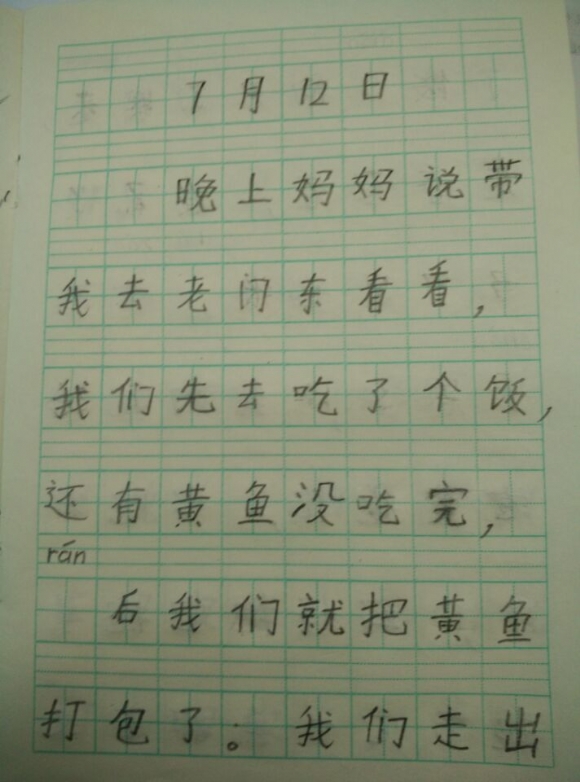 7月12日
晚上妈妈说带
我去老闭东看看,
我们先去吃了个饭,
还有黄鱼没吃完,
rán
后我们就把黄鱼
打包了。我们走出